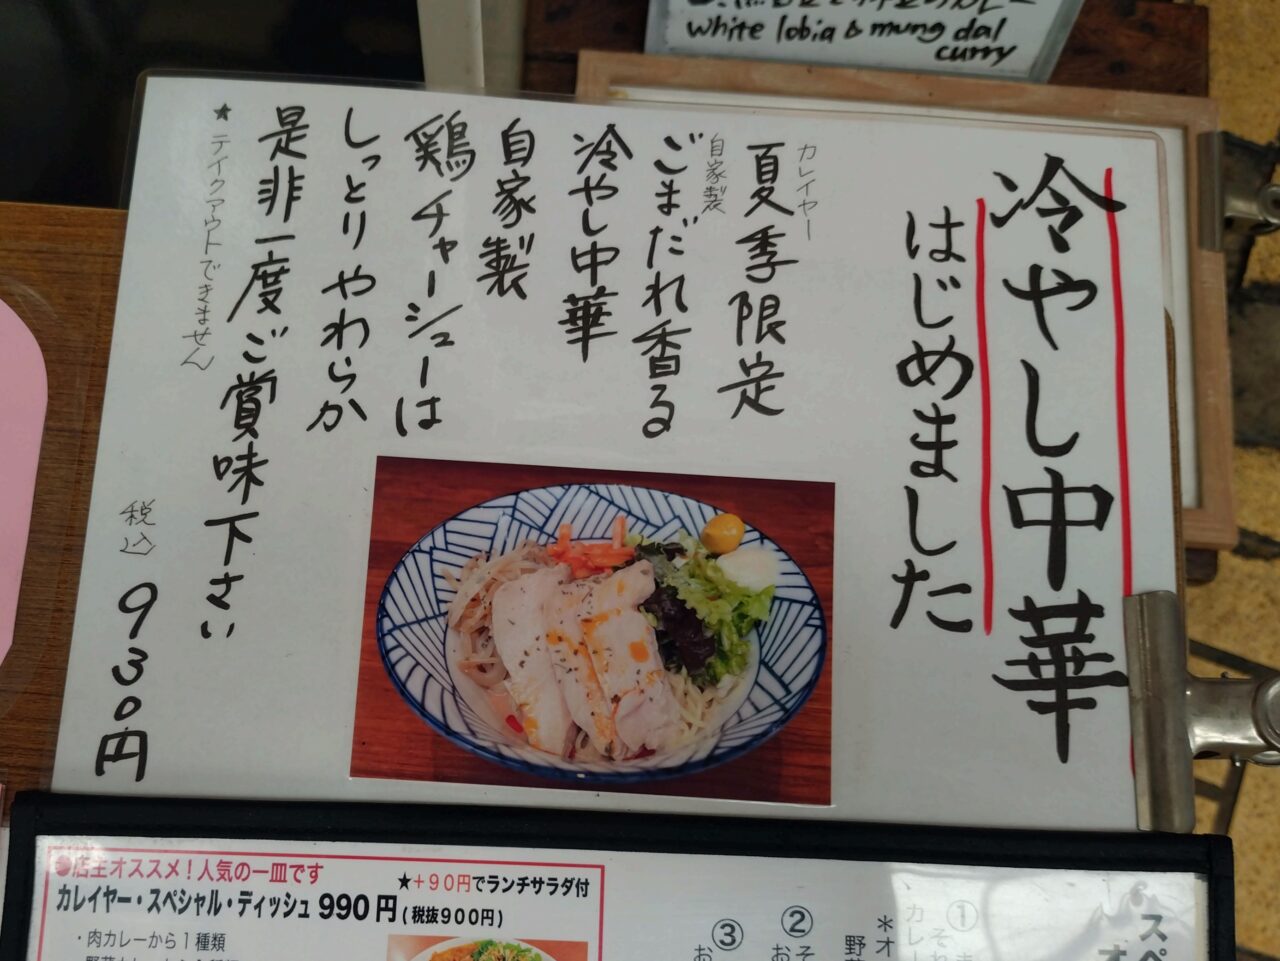 white lobia & mung dal
curry
冷やし中華
はじめました
カレイヤー
夏季限定
自家製
ごまだれ香る
冷やし中華
自家製
鶏チャーシューは
しっとりやわらか
是非一度ご賞味下さい
★テイクアウトできません
税込 930円
●店主オススメ!人気の一皿です
カレイヤー・スペシャル・ディッシュ 990円(税抜900円)
★+90円でランチサラダ付
・肉カレーから1種類
スペ
オ
①
②
③